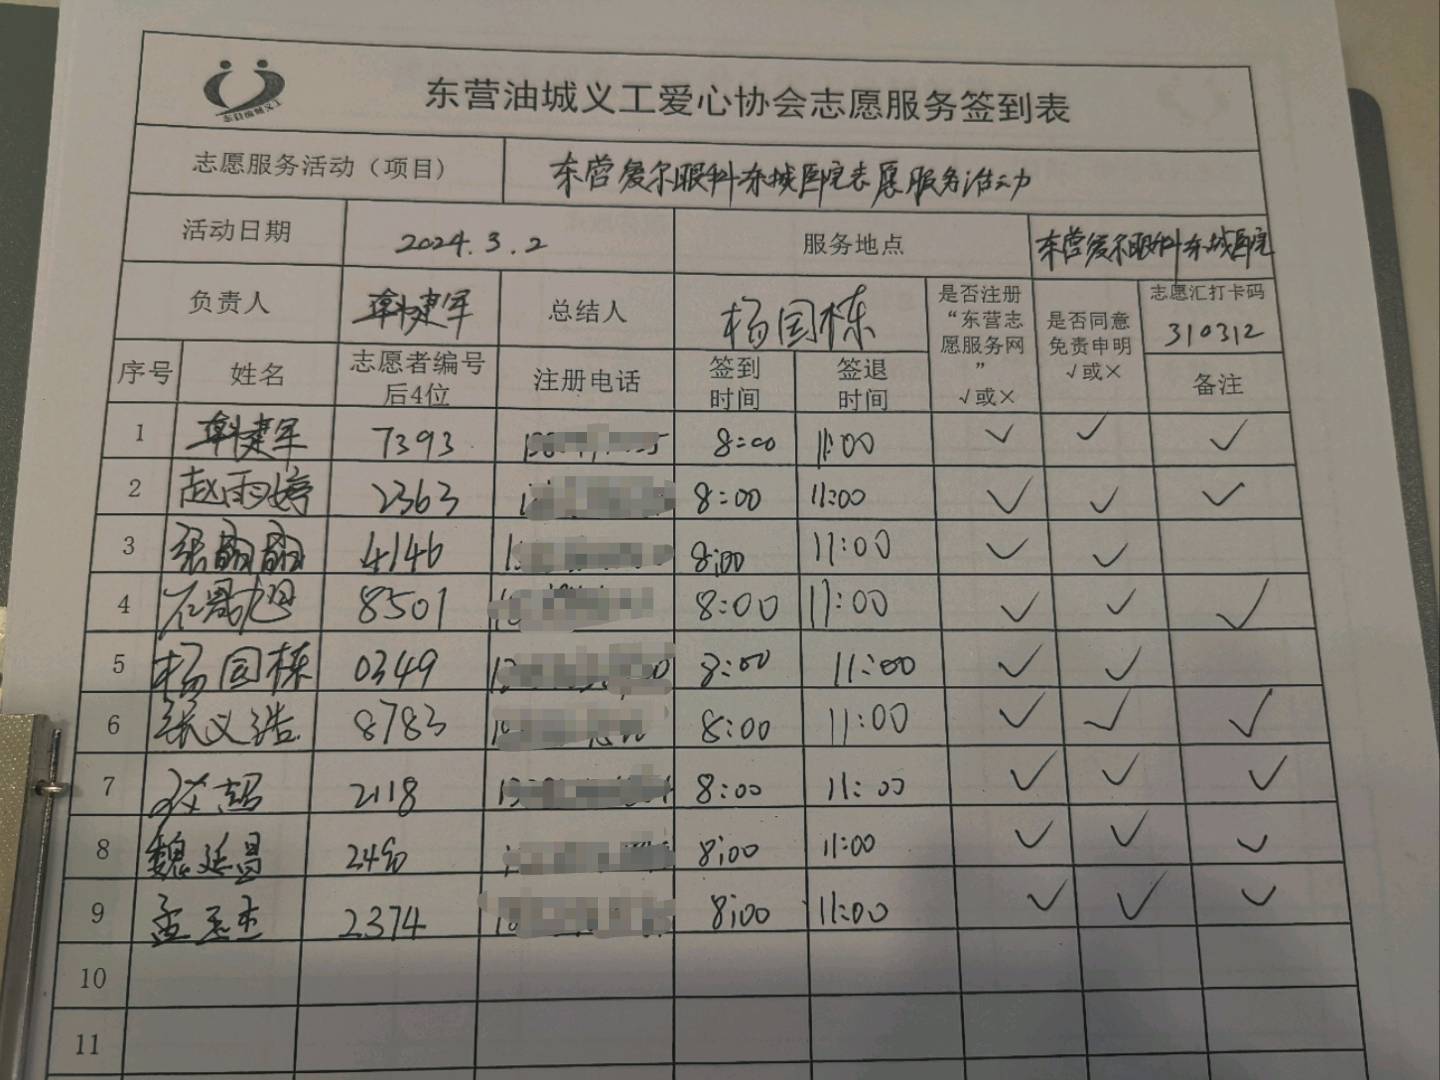 东营油城义工
东营油城义工爱心协会志愿服务签到表
志愿服务活动（项目） 东营爱尔眼科东城医院志愿服务活动
活动日期 2024.3.2 服务地点 东营爱尔眼科东城医院
负责人 韩建军 总结人 杨国栋 是否注册“东营志愿服务网” √或× 是否同意免责申明 √或× 志愿汇打卡码 310312
序号 姓名 志愿者编号后4位 注册电话 签到时间 签退时间 备注
1 韩建军 7393 8:00 11:00 √ √ √
2 赵雨婷 2363 8:00 11:00 √ √ √
3 张翩翩 4146 8:00 11:00 √ √
4 8501 8:00 11:00 √ √ √
5 杨国栋 0349 8:00 11:00 √ √
6 张义浩 8783 8:00 11:00 √ √ √
7 2118 8:00 11:00 √ √ √
8 魏延昌 8:00 11:00 √ √ √
9 孟玉杰 2374 8:00 11:00 √ √ √
10
11